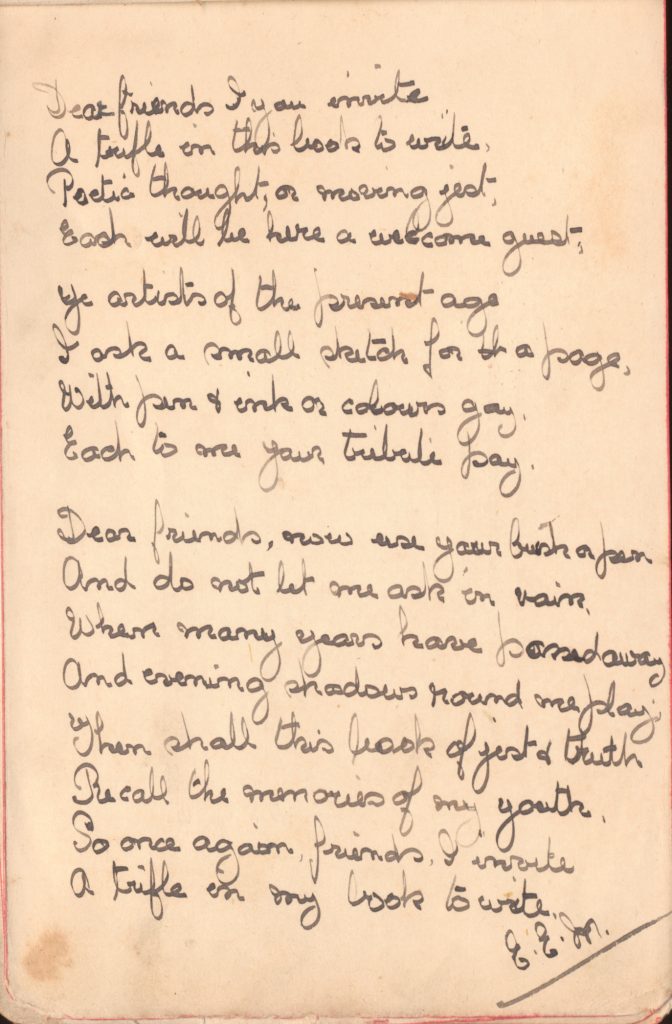 Dear friends I you invite
A trifle in this book to write,
Poetic thought, or moving jest,
Each will be here a welcome guest,
Ye artists of the present age
I ask a small sketch for a page,
With pen & ink or colours gay,
Each to me your tribute pay.
Dear friends, now use your brush or pen
And do not let me ask in vain,
When many years have passed away
And evening shadows round me play;
Then shall this book of jest & truth
Recall the memories of my youth.
So once again, friends, I invite
A trifle in my book to write.
E. E. M.